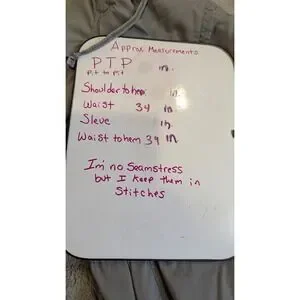 Approx Measurements
PTP in.
Pit to Pit
Shoulder to hem in.
Waist 34 in
Sleve in.
Waist to hem 39 in
I'm no Seamstress
but I keep them in
Stitches